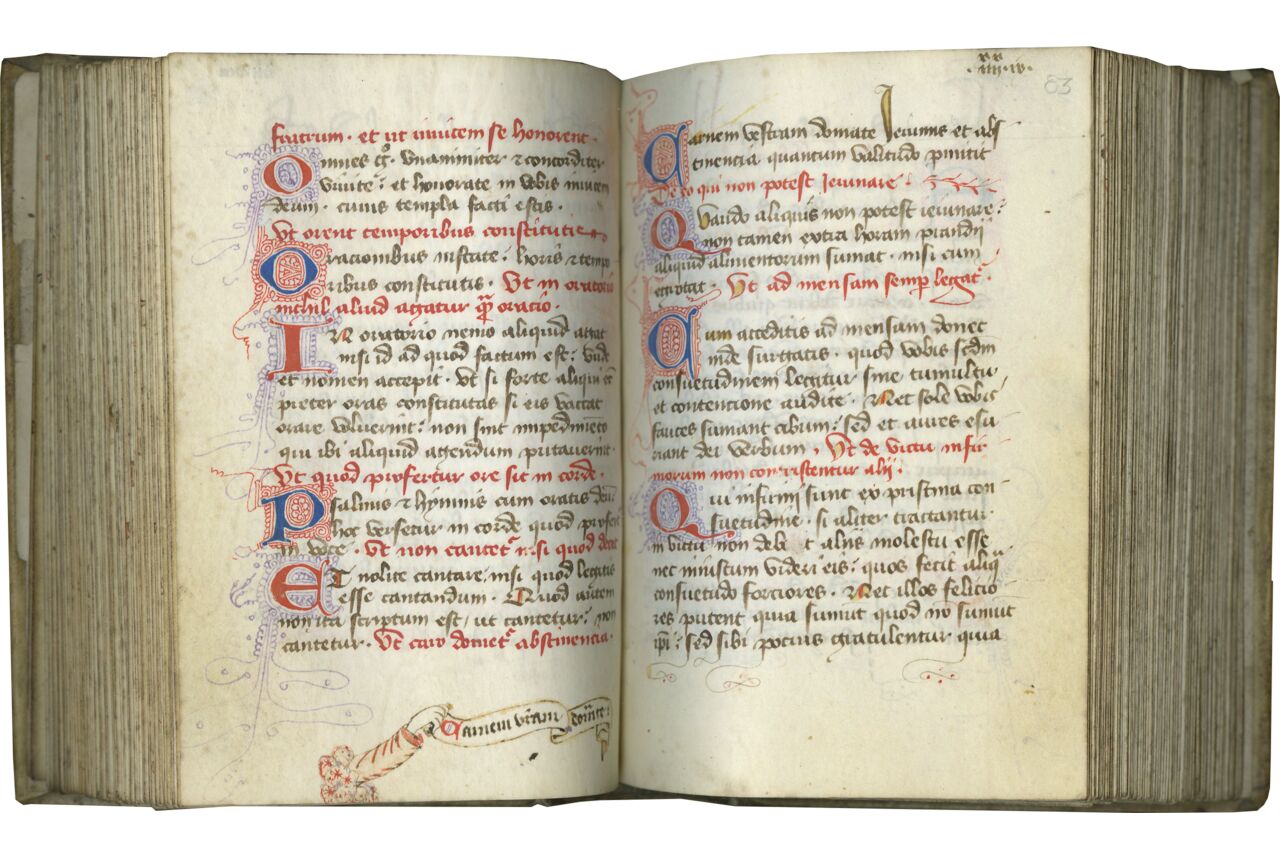 fratrum · et ut invicem se honorent ·
Omnes g° · Unanimiter ⁊ concorditer
vivite : et honorate in vobis invicem
deum · cuius templa facti estis ·
Ut orent temporibus constitutis
Oracionibus instate : horis ⁊ tempo
ribus constitutis · Ut in oratorio
nichil aliud agatur qua oracio ·
IN oratorio nemo aliquid agat
nisi id ad quod factum est : unde
et nomen accepit · Ut si forte aliqui
preter oras constitutas si eis vaccat
orare voluerint : non sint impedimeto
qui ibi aliquid agendum putaverint ·
Ut quod profertur ore sit in corde ·
Psalmis ⁊ hymnis cum oratis deu :
hoc versetur in corde quod profert
in voce · Ut non cantet nisi quod decet
ET nolite cantare, nisi quod legitis
esse cantandum · Quod autem
non ita scriptum est, ut cantetur : non
cantetur · Ut caro domet abstinencia ·
Carnem vram domate :
·iiii·iv·
83
Carnem vestram domate Ieiuniis et abs
tinencia quantum valitudo pmittit
De eo qui non potest Ieiunare ·
Quando aliquis non potest ieiunare :
non tamen extra horam prandii
aliquid alimentorum sumat · nisi cum
egrotat · Ut ad mensam semp legat ·
Cum acceditis ad mensam donec
inde surgatis · quod vobis scdm
consuetudinem legitur sine tumultu
et contencione audite · Nec sole vobis
fauces sumant cibum : sed et aures esu
riant dei verbum · Ut de victu infir
morum non contristentur alii ·
Qui infirmi sunt ex pristina con
suetudine · si aliter tractantur
in victu non debet aliis molestu esse
nec iniustum videri eis : quos fecit aliq
consuetudo forciores · Nec illos felicio
res putent quia sumut quod no sumut
ipi : sed sibi pocius gratulentur quia